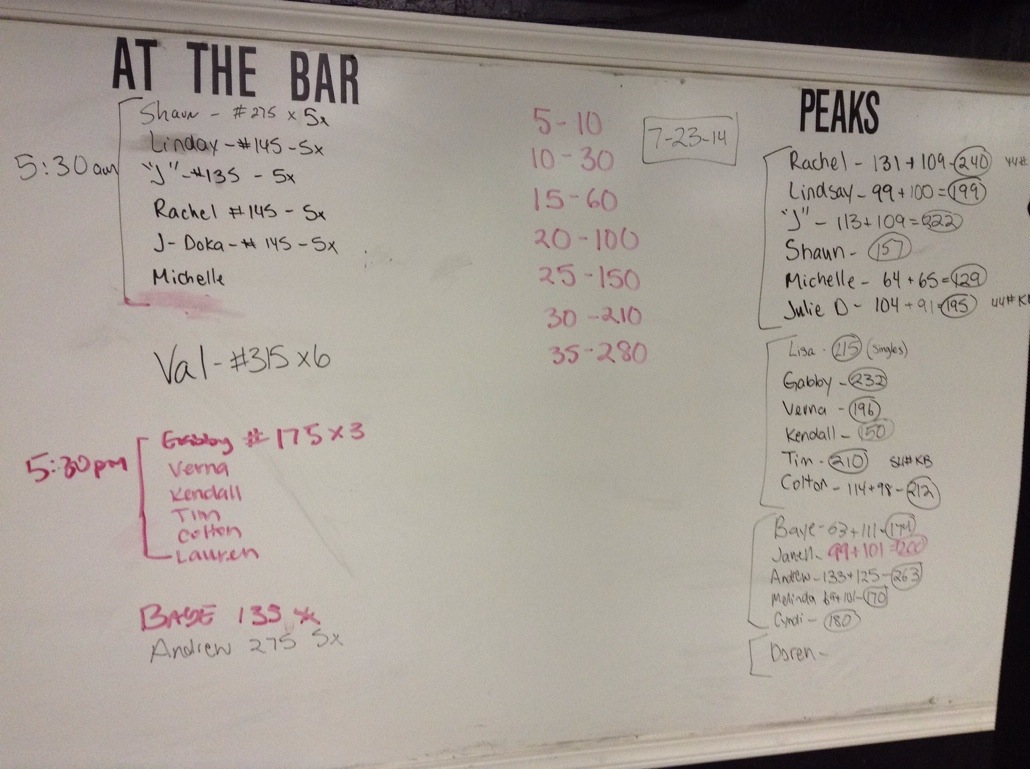 AT THE BAR
5:30am
Shaun - #275 x 5x
Linday - #145 - 5x
"J" - #135 - 5x
Rachel #145 - 5x
J-Doka - # 145 - 5x
Michelle
Val - #315 x 6
5:30pm
Gabby # 175 x 3
Verna
Kendall
Tim
Colton
Lauren
135
Andrew 275 5x
5-10
10-30
15-60
20-100
25-150
30-210
35-280
7-23-14
PEAKS
Rachel - 131 + 109 - 240 44#
Lindsay - 99 + 100 = 199
"J" - 113 + 109 = 222
Shaun - 157
Michelle - 64 + 65 = 129
Julie D - 104 + 91 = 195 44# KB
Lisa - 215 (singles)
Gabby - 232
Verna - 196
Kendall - 150
Tim - 210 KB
Colton - 114 + 98 - 212
Baye - 63 + 111 - 174
Janell - 99 + 101 = 200
Andrew - 133 + 125 - 263
Melinda 69 + 101 - 170
Cyndi - 180
Doren -